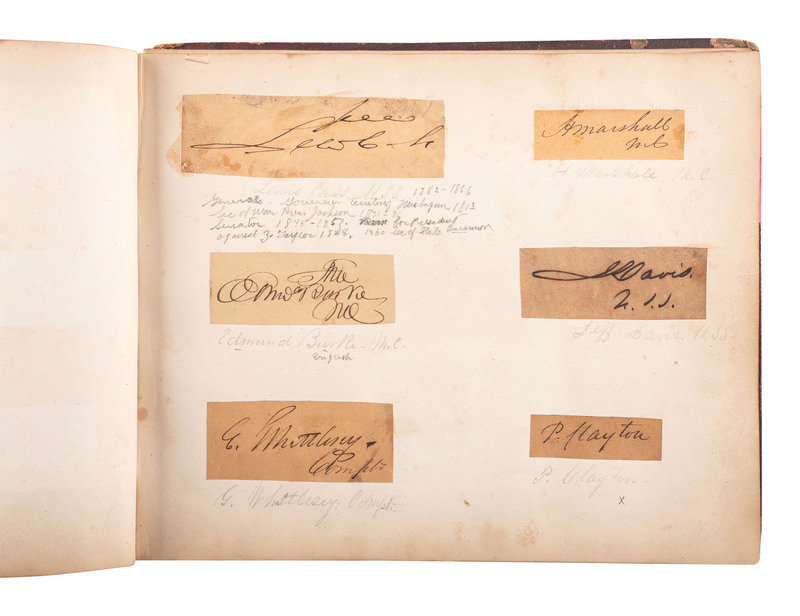 Free
Lew Cass
Lewis Cass U.S.S. 1782-1866
General. Governor Territory Michigan 1813
Sec of War Pres Jackson 1831-36
Senator 1845-1857. for President
against Z. Taylor 1848. 1860 Sec of State Buchanan
Free
Edmd Burke
MC
Edmund Burke - M.C.
English
E. Whittlesey
Compt
G. Whittlesey. Compt.
H Marshall
MC
H Marshall M.C.
J Davis.
U.S.S.
Jeff. Davis. U.S.S.
P. Clayton
P. Clayton -
x